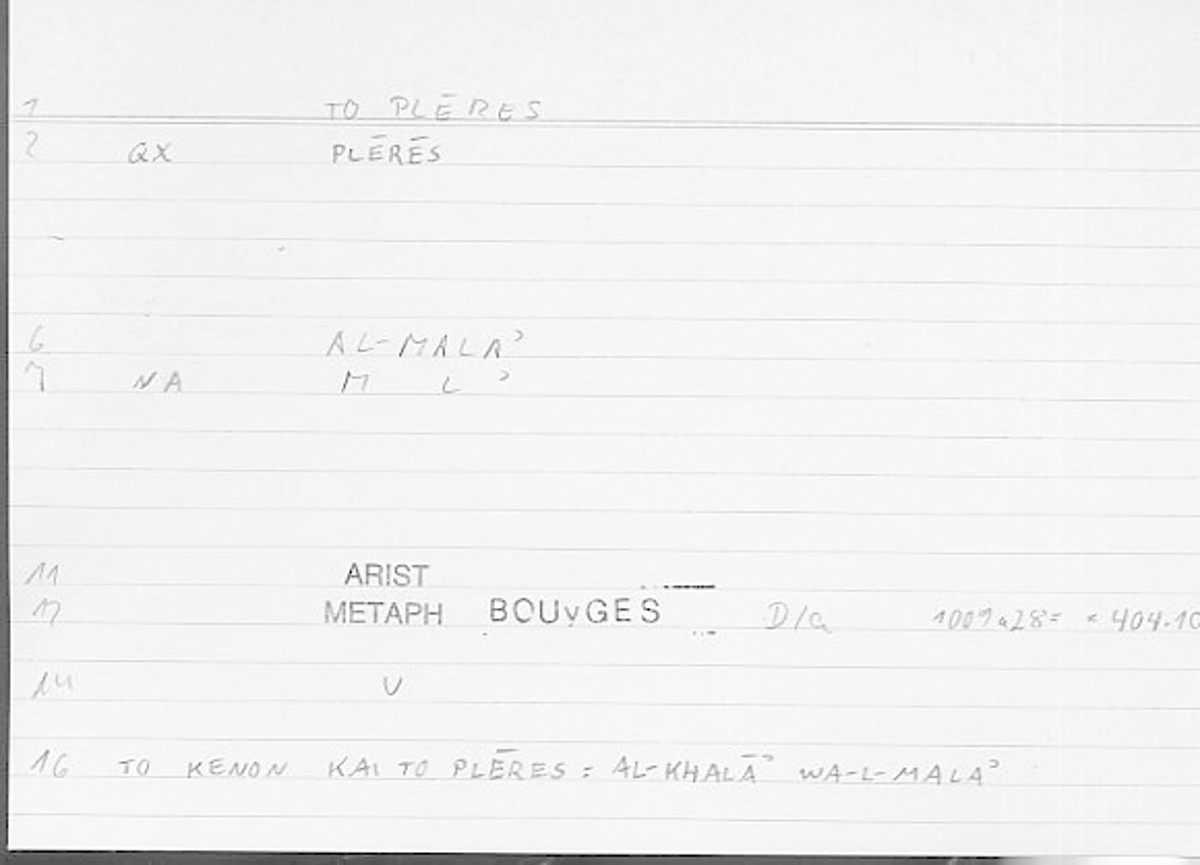 1 TO PLĒRES
2 QX PLĒRĒS
6 AL-MALAʾ
7 NA M L ʾ
11 ARIST
12 METAPH BOUyGES D/a 1009a28= 404.10
14 V
16 TO KENON KAI TO PLĒRES : AL-KHALĀʾ WA-L-MALAʾ